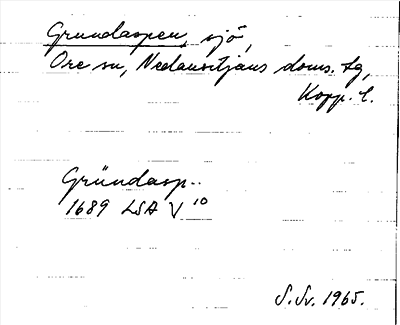 Grundaspen, sjö,
Ore sn, Nedansiljans doms. tg,
Kopp. l.
Gründasp..
1689 LSA V 10
S. Sv. 1965.